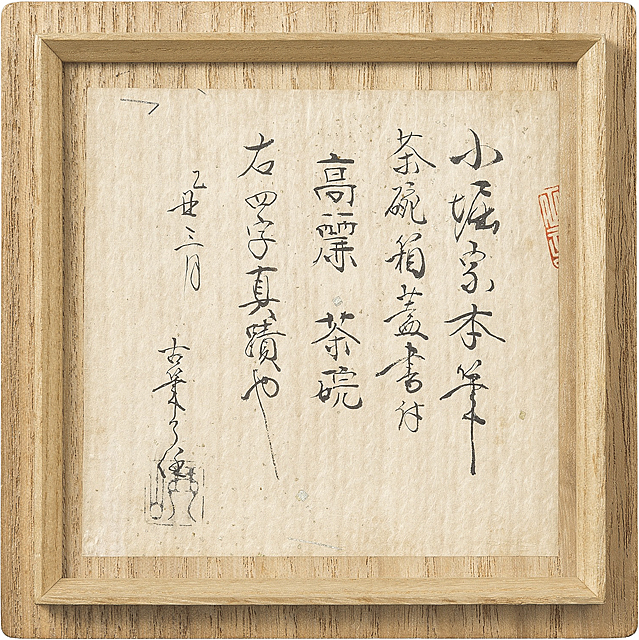 小堀宗本筆
茶碗箱蓋書付
高麗 茶碗
右四字真蹟也
乙丑三月
古筆了任